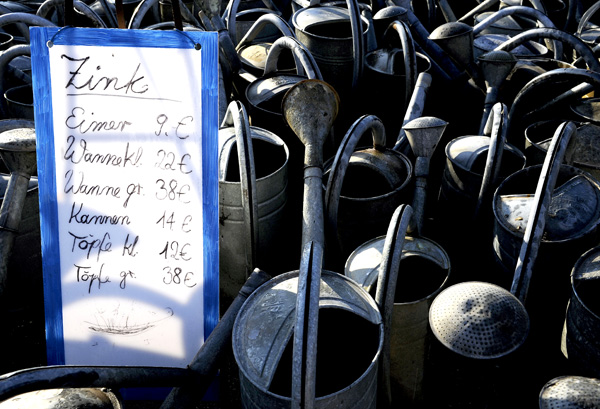 Zink
Eimer 9.€
Wanne kl. 22€
Wanne gr. 38€
Kannen 14€
Töpfe kl. 12€
Töpfe gr. 38€